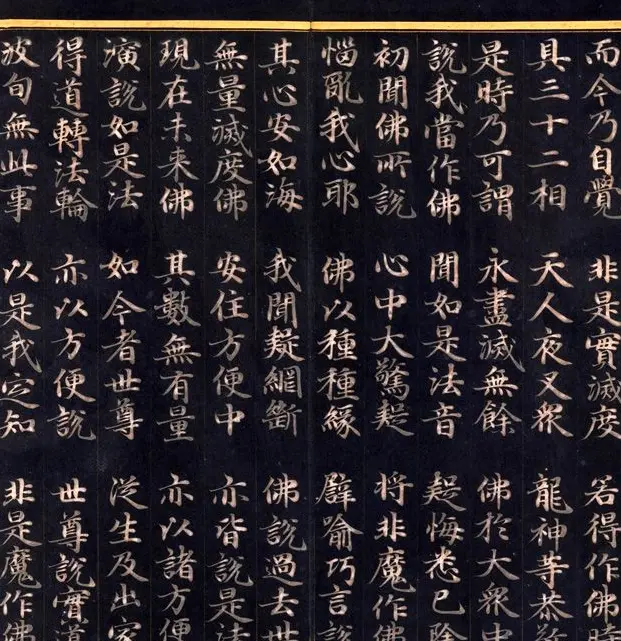 而今乃自覺 非是實滅度 若得作佛時
具三十二相 天人夜叉眾 龍神等恭
是時乃可謂 永盡滅無餘 佛於大眾中
說我當作佛 聞如是法音 疑悔悉已除
初聞佛所說 心中大驚疑 將非魔作佛
惱亂我心耶 佛以種種緣 譬喻巧言說
其心安如海 我聞疑網斷 佛說過去世
無量滅度佛 安住方便中 亦皆說是法
現在未來佛 其數無有量 亦以諸方便
演說如是法 如今者世尊 從生及出家
得道轉法輪 亦以方便說 世尊說實道
波旬無此事 以是我定知 非是魔作佛